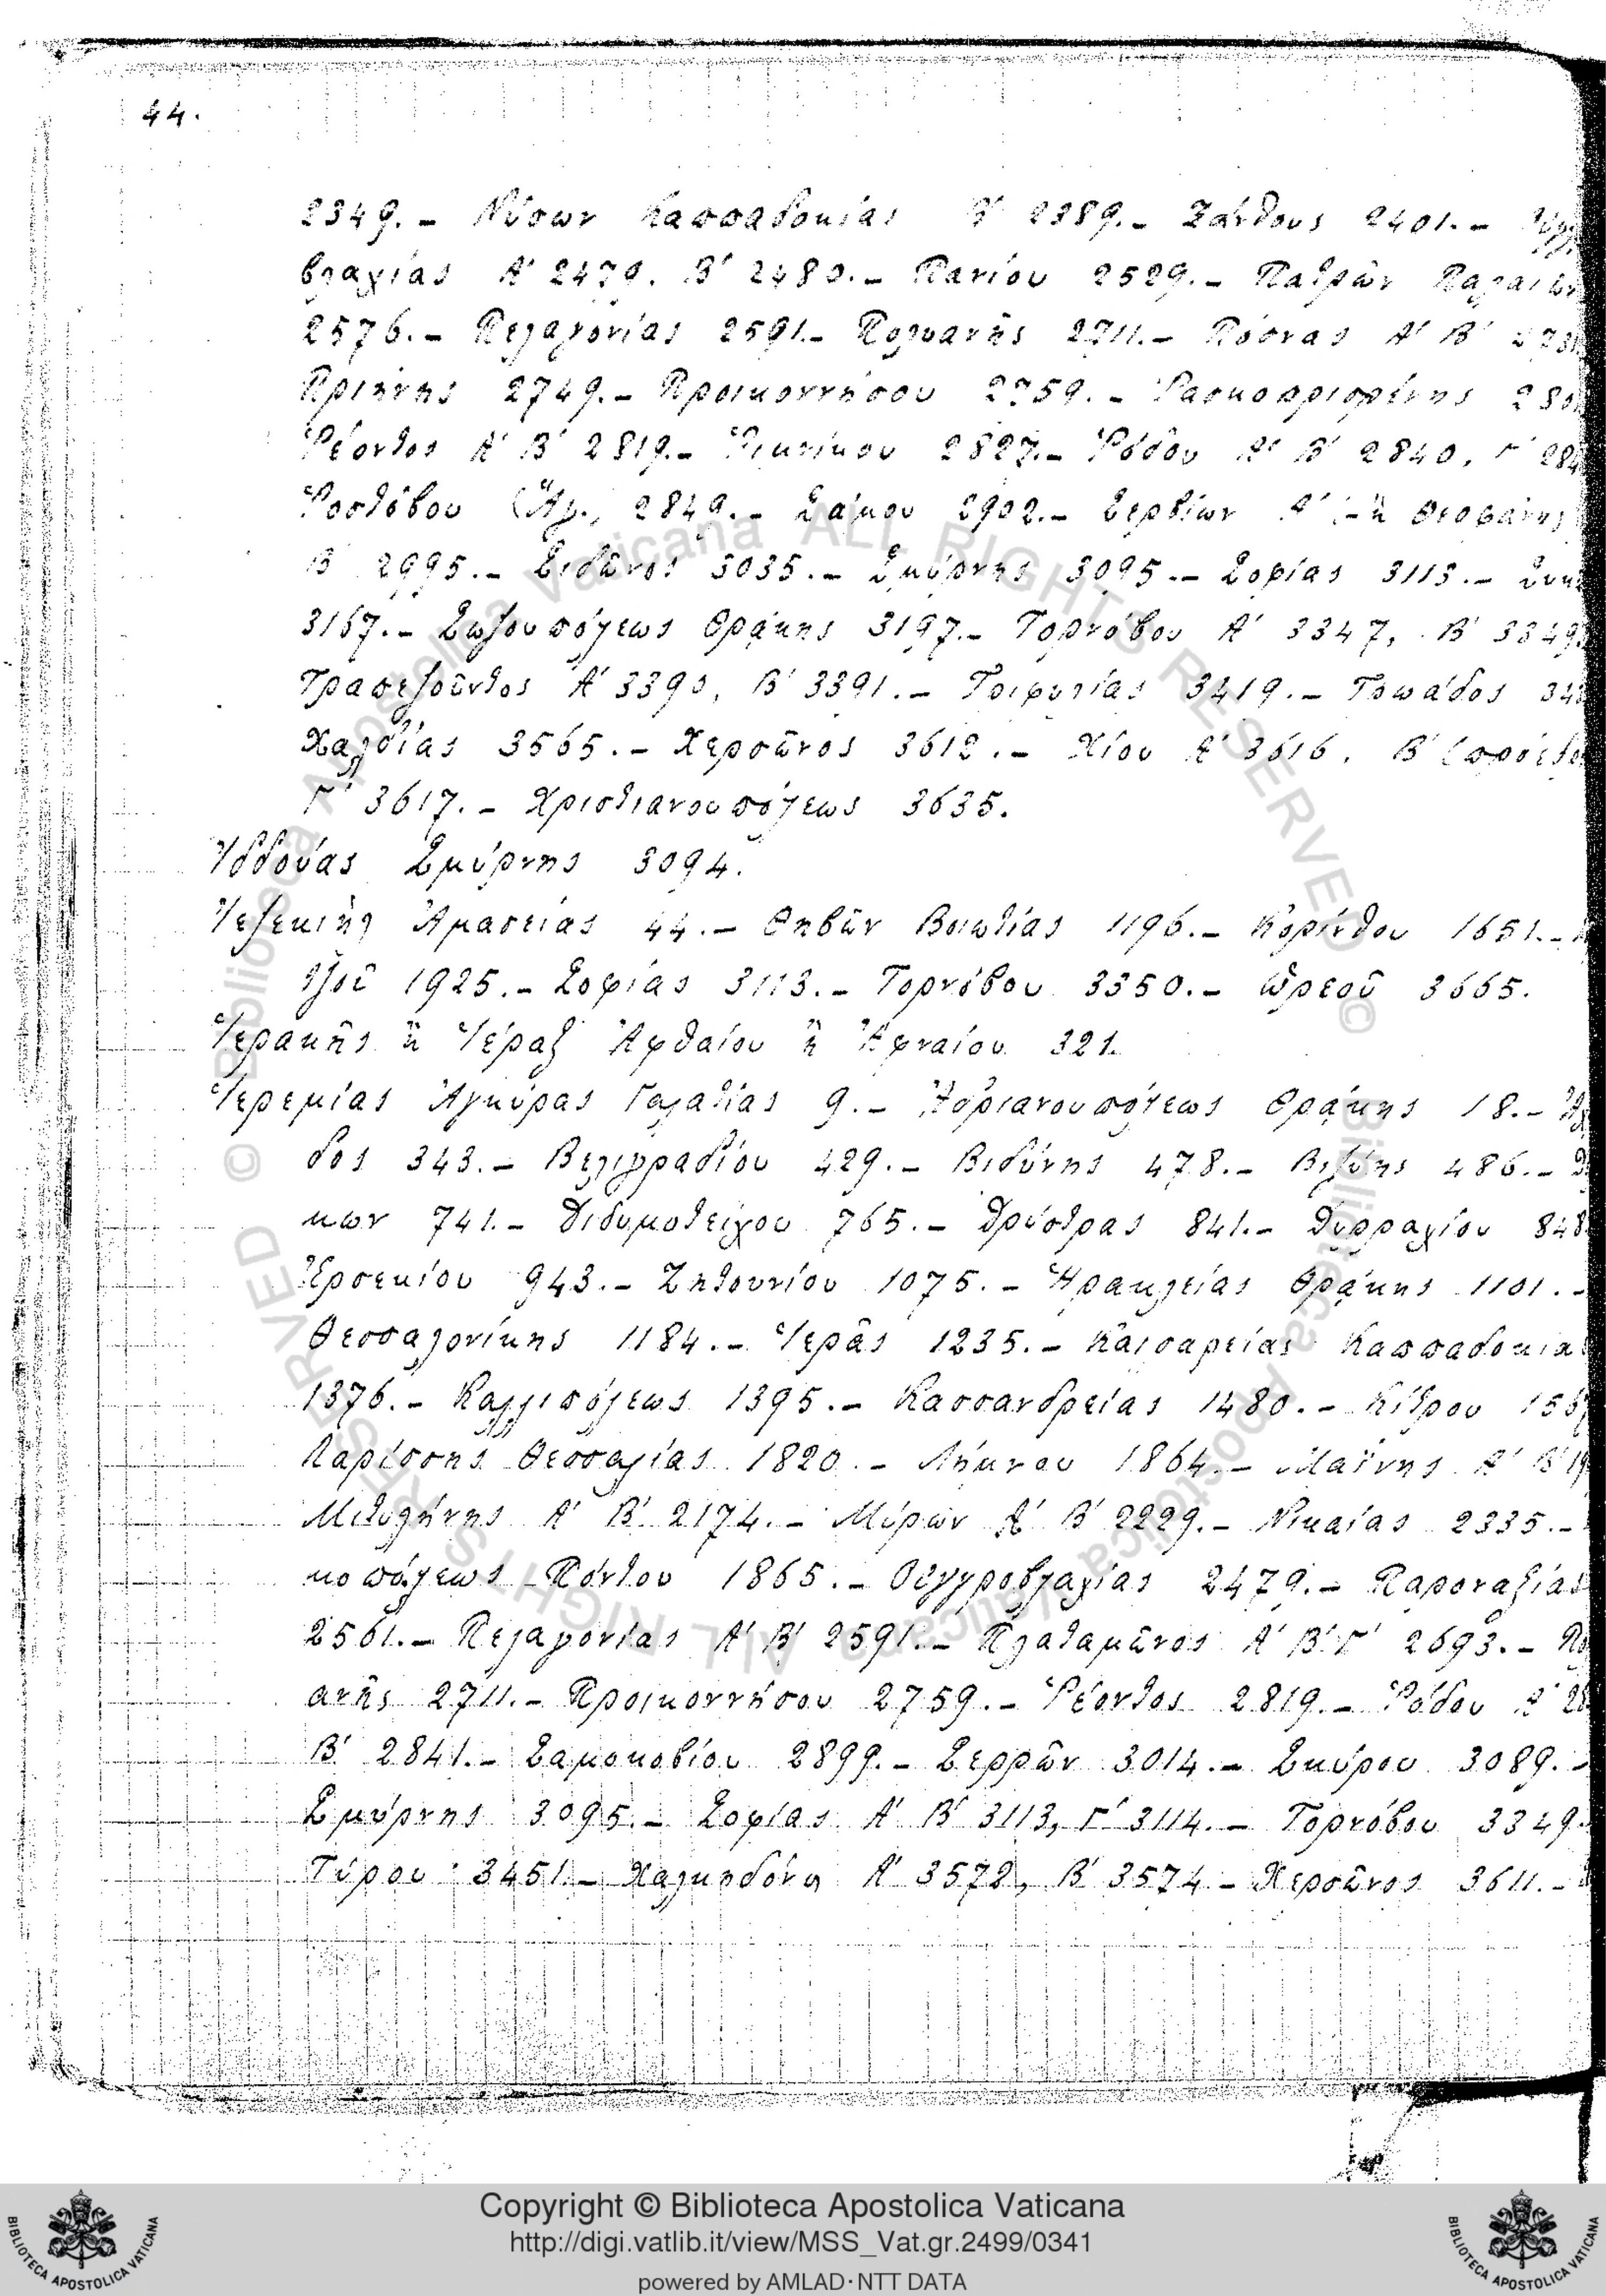 44.
2349.- Νύσων Καππαδοκίας Β' 2389.- Ξάνθους 2401.-
βλαχίας Α' 2479. Β' 2480.- Πανίου 2529.- Πατρῶν Παλαιῶν
2576.- Πελαγονίας 2591.- Πολυανῆς 2711.- Πόσνας Α' Β'
Πριήνης 2749.- Προικοννήσου 2759.- Ῥασκοπρισρένης
Ῥέοντος Α' Β' 2819.- 2827.- Ῥόδου Α' Β' 2840, Γ'
Ῥοστόβου (Ἅγ., 2849.- Σάμου 2902.- Σερβίων Α' ἢ Θεοφάνης
Β' 2995.- Σιδῶνος 3035.- Σμύρνης 3095.- Σοφίας 3113.-
3167.- Σωζουπόλεως Θρᾴκης 3197.- Τορνόβου Α' 3347, Β' 3349.
Τραπεζοῦντος Α' 3390, Β' 3391.- Τριφυλίας 3419.- Τρωάδος
Χαλδίας 3565.- Χερσῶνος 3612.- Χίου Α' 3616, Β' (πρόεδρ
Γ' 3617.- Χριστιανουπόλεως 3635.
Ἰδδούας Σμύρνης 3094.
Ἰεζεκιὴλ Ἀμασείας 44.- Θηβῶν Βοιωτίας 1196.- Κορίνθου 1651.-
τζοῦ 1925.- Σοφίας 3113.- Τορνόβου 3350.- Ὠρεοῦ 3665.
Ἱερακῆς ἢ Ἱέραξ Ἀφθαίου ἢ Ἀφναίου 321.
Ἱερεμίας Ἀγκύρας Γαλατίας 9.- Ἀδριανουπόλεως Θρᾴκης 18.-
δος 343.- Βελιγραδίου 429.- Βιδύνης 478.- Βιζύης 486.-
κων 741.- Διδυμοτείχου 765.- Δρύστρας 841.- Δυρραχίου 848
Ἐρσεκίου 943.- Ζητουνίου 1075.- Ἡρακλείας Θρᾴκης 1101.-
Θεσσαλονίκης 1184.- Ἱερᾶς 1235.- Καισαρείας Καππαδοκίας
1376.- Καλλιπόλεως 1395.- Κασσανδρείας 1480.- Κίτρου
Λαρίσσης Θεσσαλίας 1820.- Λήμνου 1864.- Μαΐνης Α' Β'
Μιτυλήνης Α' Β' 2174.- Μύρων Α' Β' 2229.- Νικαίας 2335.-
κοπόλεως Πόντου 1865.- Οὑγγροβλαχίας 2479.- Παροναξίας
2561.- Πελαγονίας Α' Β' 2591.- Πλαταμῶνος Α' Β' Γ' 2693.-
ανῆς 2711.- Προικοννήσου 2759.- Ῥέοντος 2819.- Ῥόδου Α'
Β' 2841.- Σαμοκοβίου 2899.- Σερρῶν 3014.- Σκύρου 3089.-
Σμύρνης 3095.- Σοφίας Α' Β' 3113, Γ' 3114.- Τορνόβου 3349.
Τύρου 3451.- Χαλκηδόνος Α' 3572, Β' 3574 - Χερσῶνος 3611.-
Copyright © Biblioteca Apostolica Vaticana
http://digi.vatlib.it/view/MSS_Vat.gr.2499/0341
powered by AMLAD·NTT DATA